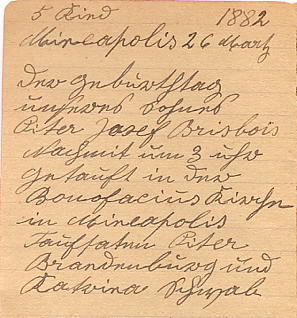 5 Kind 1882
Mineapolis 26 Martz
Der Geburthstag
unseres Sohnes
Piter Josef Brisbois
Nachmit um 3 uhr
Getauft in der
Bonofacius Kirche
in Mineapolis
Taufpaten Piter
Brandenburg und
Katrina Schwab